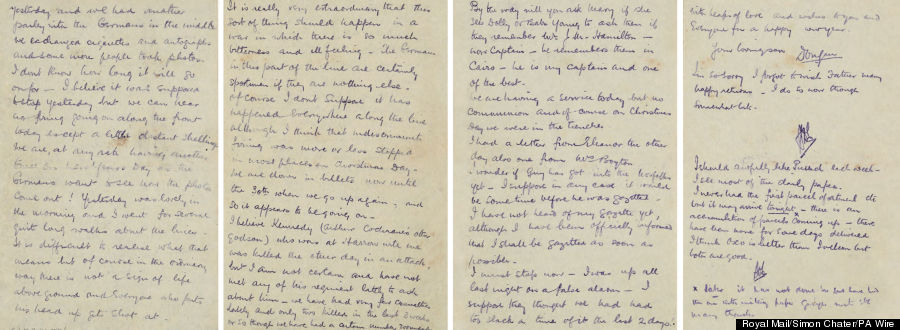 yesterday and we had another
party with the Germans in the middle.
We exchanged cigarettes and autographs
and some more people took photos.
I don't know how long it will go
on for – I believe it was supposed
to stop yesterday but we can hear
no firing going on along the front
today except a little distant shelling
We are at any rate having another
truce on New Year's Day as the
Germans want to see how the photos
come out! Yesterday was lovely in
the morning and I went for several
quite long walks about the lines
It is difficult to realise what that
means but of course in the ordinary
way there is not a sign of life
above ground and everyone who puts
his head up gets shot at.
It is really very extraordinary that this
sort of thing should happen in a
war in which there is so much
bitterness and ill feeling. The Germans
in this part of the line are certainly
sportsmen if they are nothing else.
Of course I don't suppose it has
happened everywhere along the line
although I think that indiscriminate
firing was more or less stopped
in most places on Christmas Day.
We are down in billets now until
the 30th when we go up again, and
so it appears to be going on –
I believe Kennedy (Arthur Cochranes other
Godson) who was at Harrow with me
was killed the other day in an attack,
but I am not certain and have not
met any of his regiment lately to ask
about him – we have had very few casualties
lately and only two killed in the last 3 weeks
or so though we have had a certain number wounded
By the way will you ask Mary if she
sees Dolly or that's Young to ask them if
they remember Mr. J.M. Hamilton –
now Captain – he remembers them in
Cairo – he is my captain and one
of the best.
We are having a service today but no
Communion and of course on Christmas
Day we were in the trenches
I had a letter from Eleanor the other
day also one from Mrs Boyton
I wonder if Guy has got into the Norfolks
yet – I suppose in any case it would
be some time before he was gazetted.
I have not heard of my Gazette yet,
although I have been officially informed
that I shall be gazetted as soon as
possible.
I must stop now – I was up all
last night on a false alarm – I
suppose they thought we had had
to slack a time of it the last 2 days.
with heaps of love and wishes to you and
everyone for a happy new year.
Your loving son
Dougan
I'm so sorry I forgot to wish Father many
happy returns – I do so now though
somewhat late.
I should awfully like Punch each week –
I see most of the daily papers.
I never had the first parcel of
but it may arrive tonight – there is an
accumulation of parcels coming up – there
have been none for some days delivered
I think Oxo is better than Ivelcon but
both are good.
many thanks
Royal Mail/Simon Chater/PA Wire